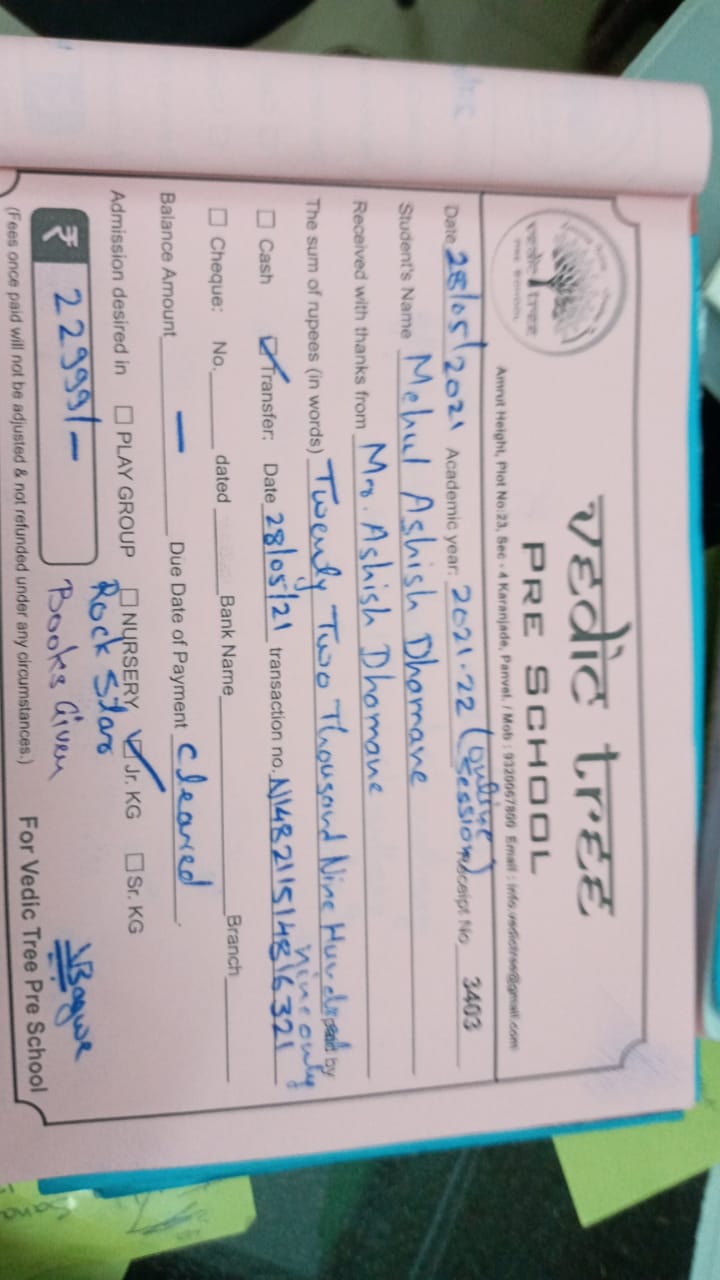 vedic tree
PRE SCHOOL
vedic tree
PRE SCHOOL
Amrut Height, Plot No:23, Sec - 4 Karanjade, Panvel. / Mob : 9320067800 Email : info.vedictree@gmail.com
Date 28/05/2021 Academic year: 2021-22 (online session) Receipt No. 3403
Student's Name Mehul Ashish Dhomane
Received with thanks from Mr. Ashish Dhomane
The sum of rupees (in words) Twenty Two Thousand Nine Hundred paid by
Nine only
☐ Cash ☑ Transfer: Date 28/05/21 transaction no. N148211514816321
☐ Cheque: No. dated Bank Name Branch
Balance Amount — Due Date of Payment Cleared
Admission desired in ☐ PLAY GROUP ☐ NURSERY ☑ Jr. KG ☐ Sr. KG
Rock Star
₹ 22999/- Books Given
For Vedic Tree Pre School
(Fees once paid will not be adjusted & not refunded under any circumstances.)